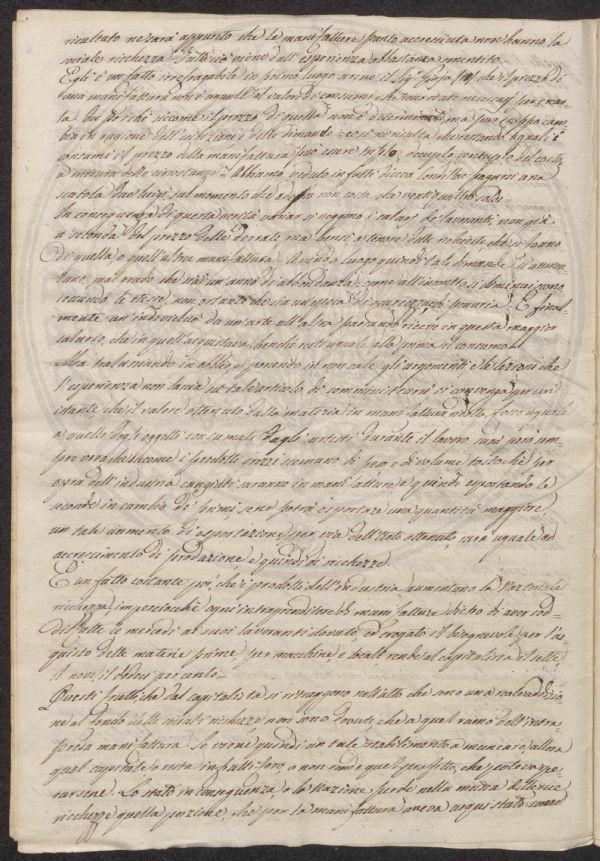 risultato ne sarà appunto che le manifatture punto accresciuta non hanno la
sociale ricchezza. Tutto ciò viene dall'esperienza abbastanza smentito.
Egli è un fatto irrefragabile in primo luogo scrive il Sig. Gioja che il prezzo di
una manifattura non è uguale al valor di consumi che sono stati necessarj per
la, poichè siccome il prezzo di questa non è determinato ma può
in ragione dell'esibizioni e delle dimande, così ne risulta che restando uguali i
consumi il prezzo della manifattura può essere triplo, decuplo, centuplo del costo,
a misura delle circostanze. Abbiamo veduto infatti diceva pagarsi una
scatola due luigi, sul momento che adesso non costa che ventiquattro soldi.
In conseguenza di questa verità si veggono i salarj de' lavoranti non già
a seconda del prezzo delle derrate, ma bensì a tenore delle richieste che si fanno
di quella o quell'altra manifattura. Avendo luogo quindi tale dimanda Essi aumen-
tano, malgrado che sia un anno di abbondanza; come all'incontro si diminuiscono
cessando le stesse, non ostante che sia un'epoca di penuria. E final-
mente un individuo da un'arte all'altra passando riceve in questa maggior
salario, che in quell'acquistava, benchè resti uguale alla prima il consumo.
Ma tralasciando in oblio, e ponendo in non cale gli argomenti e le lezioni che
l'esperienza non lascia su tale articolo di somministrarci si convenga per un
istante che il valore ottenuto dalla materia in manifattura ridotta, fosse uguale
a quello degli oggetti consumati dagli artisti durante il lavoro, sarà però sem-
pre vero che siccome i prodotti grezzi scemano di peso e di volume tosto che per
opra dell'industria cangiati saranno in manifatture, e quindi esportando le
seconde in cambio de' primi se ne potrà esportare una quantità maggiore,
un tale aumento di esportazione, per via dell'arte ottenuto, sarà uguale ad
accrescimento di produzione e quindi di ricchezze.
E' un fatto costante poi, che i prodotti dell'industria aumentano la Nazionale
ricchezza, imperciocchè ogni intraprenditore di manifatture oltre di aver sod-
disfatte le mercedi a' suoi lavoranti dovute, ed erogato il bisognevole per l'ac-
quisto delle materie prime, per macchine, e locali rende al capitalista il sette,
il nove, il dodici per cento.
Questi frutti, che dal capitalista si riscuotono nell'atto che sono una reale addizio-
ne al fondo delle sociali ricchezze non sono dovuti, che a quel ramo dell'intra-
presa manifattura. Se viene quindi un tale stabilimento a mancare, allora
quel capitale o resta infruttifero, o non rende quel profitto, che potea spe-
rarsene. Lo stato in conseguenza o la Nazione perde nella massa delle sue
ricchezze quella porzione, che per la manifattura aveva acquistato come